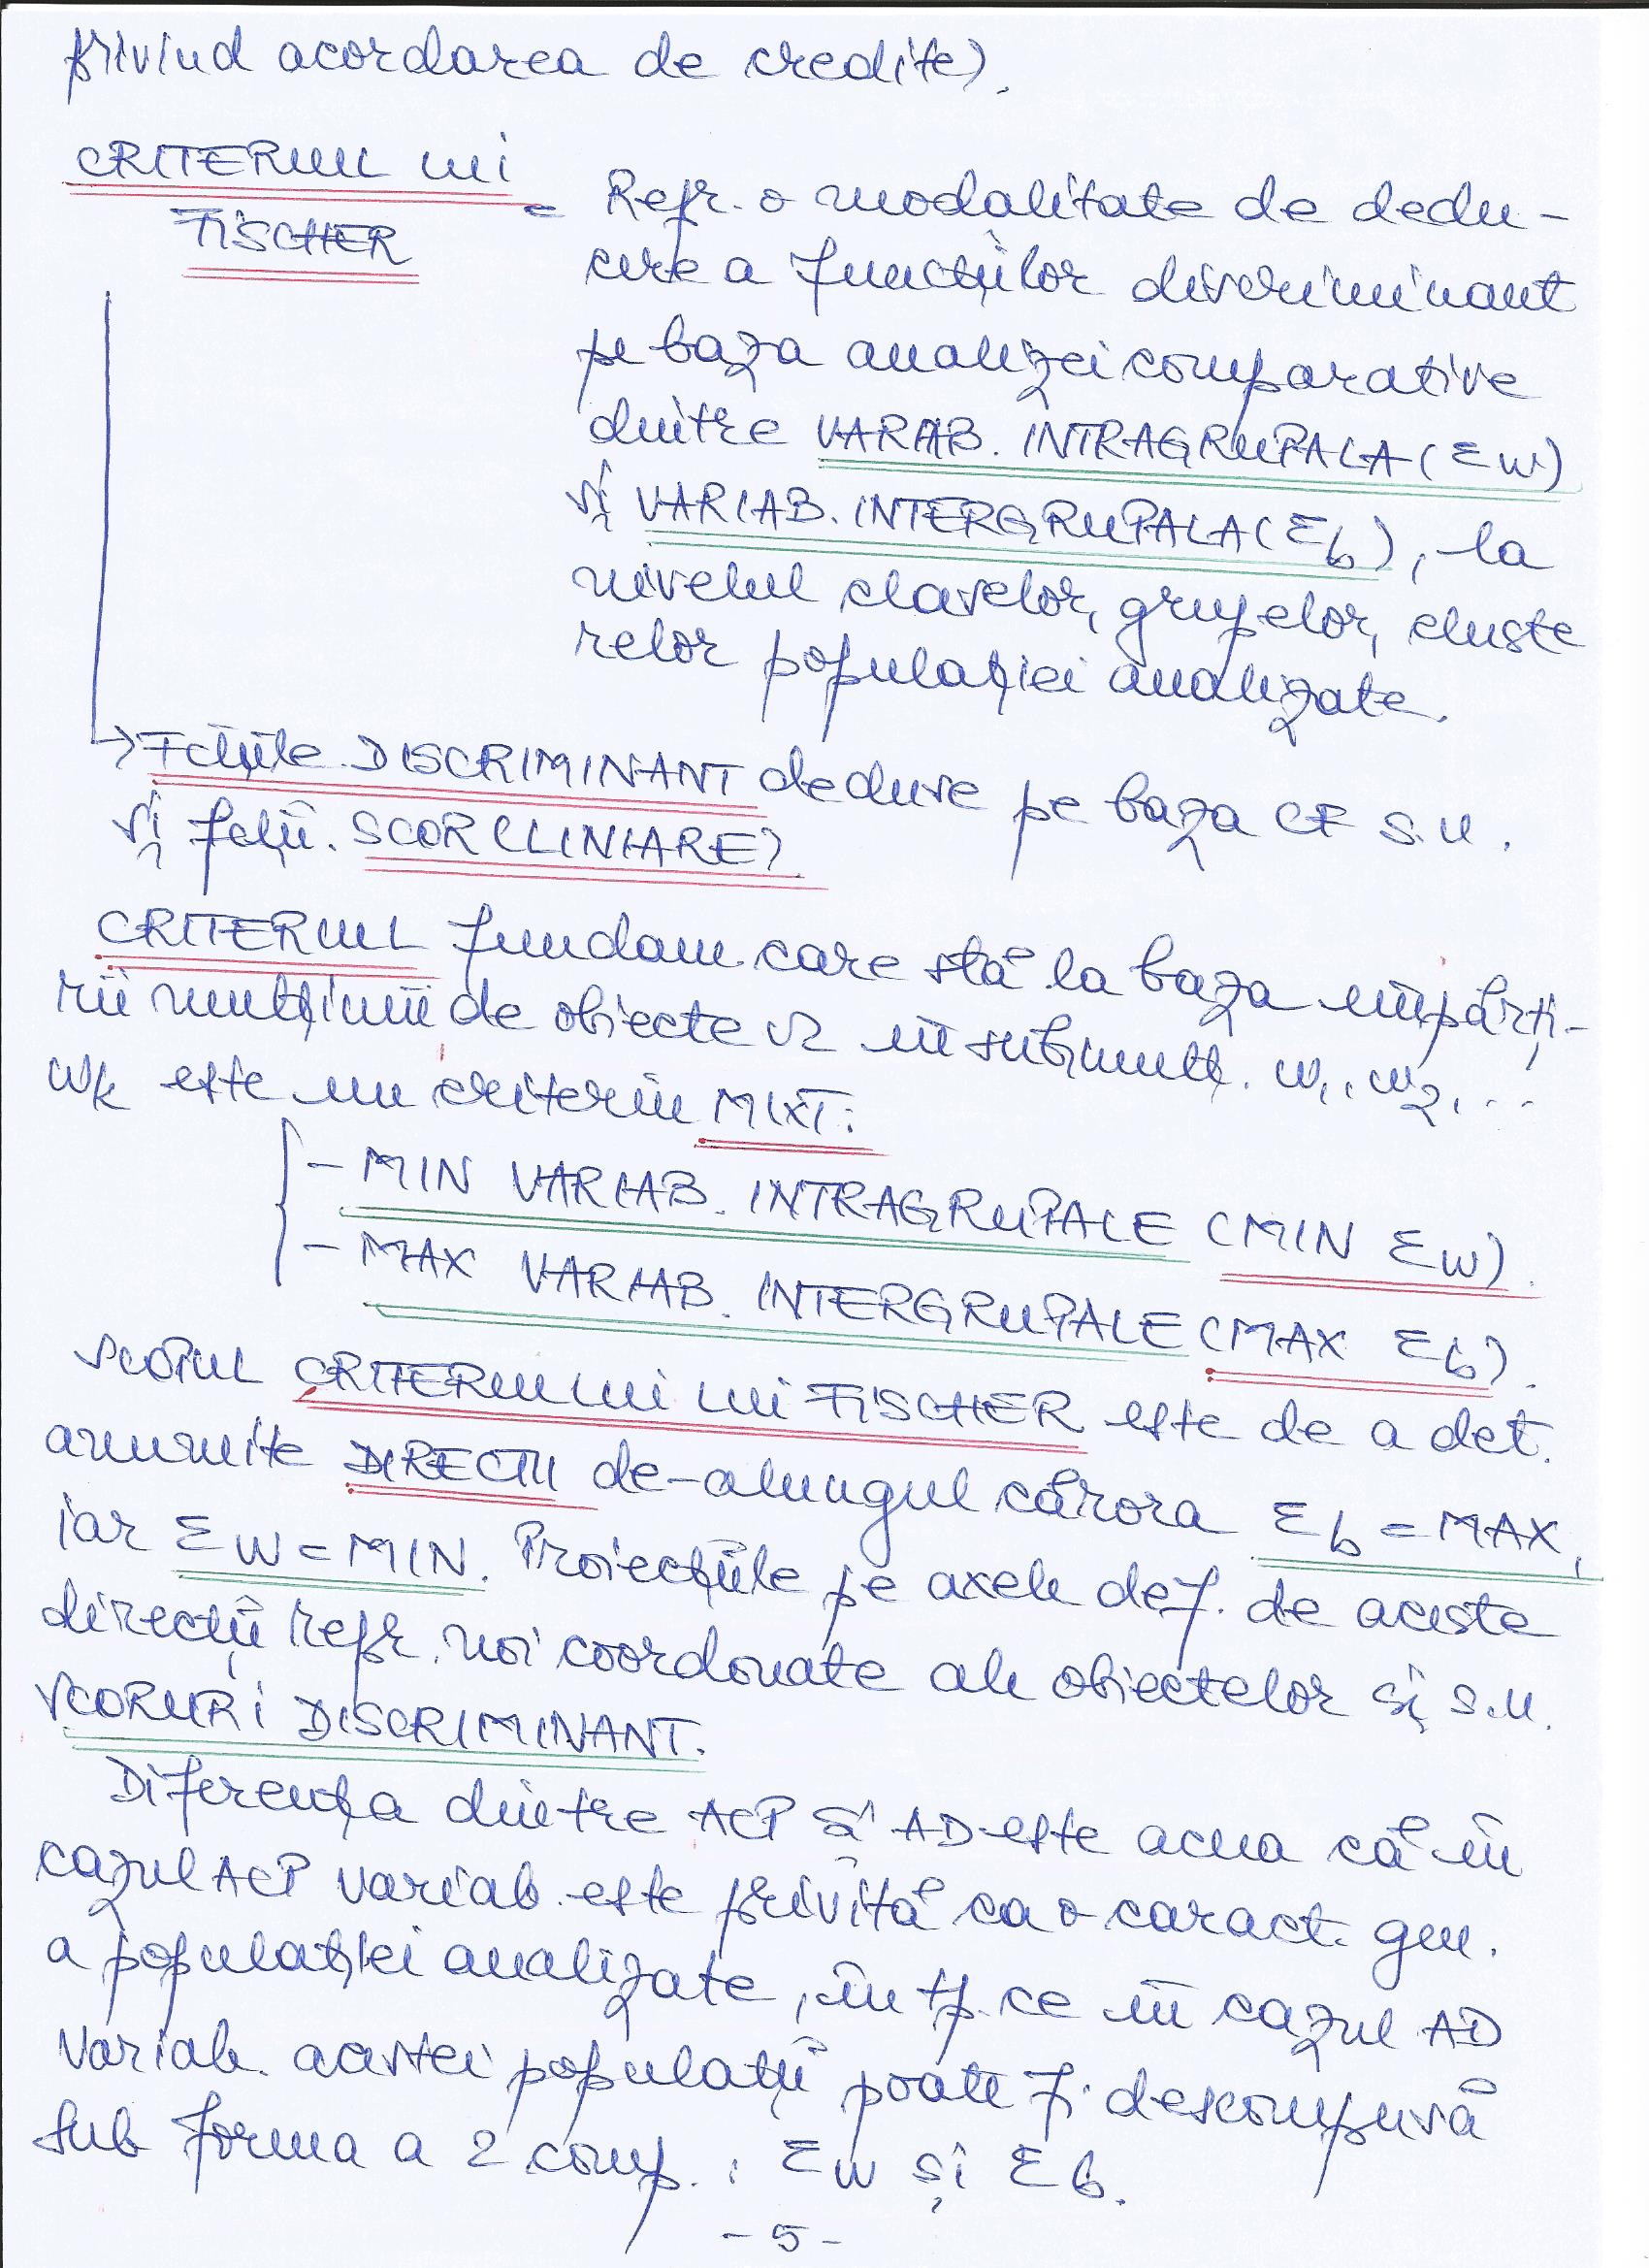 privind acordarea de credite).
CRITERIUL lui
FISCHER = Repr. o modalitate de dedu-
cere a funcțiilor discriminant
pe baza analizei comparative
dintre VARIAB. INTRAGRUPALA (Σw)
și VARIAB. INTERGRUPALA (Σb), la
nivelul claselor, grupelor, cluste
relor populației analizate.
→ Fcțiile DISCRIMINANT deduse pe baza CF s.n.
și fcții. SCOR (LINIARE).
CRITERIUL fundam. care stă la baza împărți-
rii mulțimii de obiecte Ω în submulț. w1, w2, ...
wk este un criteriu MIXT:
- MIN VARIAB. INTRAGRUPALE (MIN Σw).
- MAX VARIAB. INTERGRUPALE (MAX Σb).
SCOPUL CRITERIULUI LUI FISCHER este de a det.
anumite DIRECTII de-alungul cărora Σb = MAX,
iar Σw = MIN. Proiecțiile pe axele def. de aceste
direcții repr. noi coordonate ale obiectelor și s.n.
SCORURI DISCRIMINANT.
Diferența dintre ACP și AD este aceea că în
cazul ACP variab. este privită ca o caract. gen.
a populației analizate, în tp. ce în cazul AD
variab. acestei populații poate fi descompusă
sub forma a 2 comp. : Σw și Σb.
- 5 -